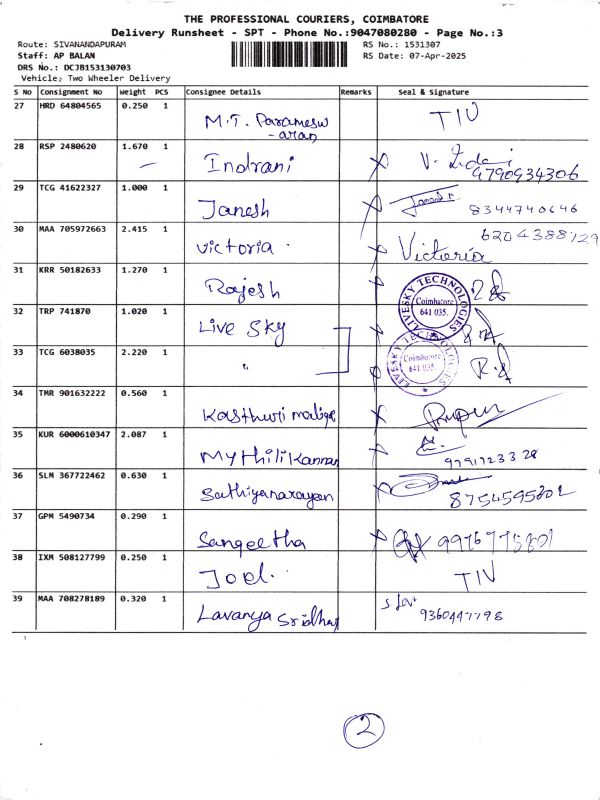 THE PROFESSIONAL COURIERS, COIMBATORE
Delivery Runsheet - SPT - Phone No.:9047080280 - Page No.:3
Route: SIVANANDAPURAM RS No.: 1531307
Staff: AP BALAN RS Date: 07-Apr-2025
DRS No.: DCJB153130703
Vehicle: Two Wheeler Delivery
S No Consignment No Weight PCS Consignee Details Remarks Seal & Signature
27 HRD 64804565 0.250 1 M.T. Paramesw TIV
-aran
28 RSP 2480620 1.670 1 Indrani V.
4790934306
29 TCG 41622327 1.000 1 Janesh 8344740646
30 MAA 705972663 2.415 1 Victoria Victoria 6204388129
31 KRR 50182633 1.270 1 Rajesh
LIVESKY TECHNOLOGIES
Coimbatore
641 035.
32 TRP 741870 1.020 1 Live Sky
33 TCG 6038035 2.220 1 "
LIVESKY TECHNOLOGIES
Coimbatore
641 035.
34 TMR 901632222 0.560 1 Kasthuri
35 KUR 6000610347 2.087 1 Mythili Kannan
36 SLM 367722462 0.630 1 Sathiyanarayan 8754595802
37 GPM 5490734 0.290 1 Sangeetha 9976775801
38 IXM 508127799 0.250 1 Joel. TIV
39 MAA 708278189 0.320 1 Lavanya Sridhar 9360447798
2